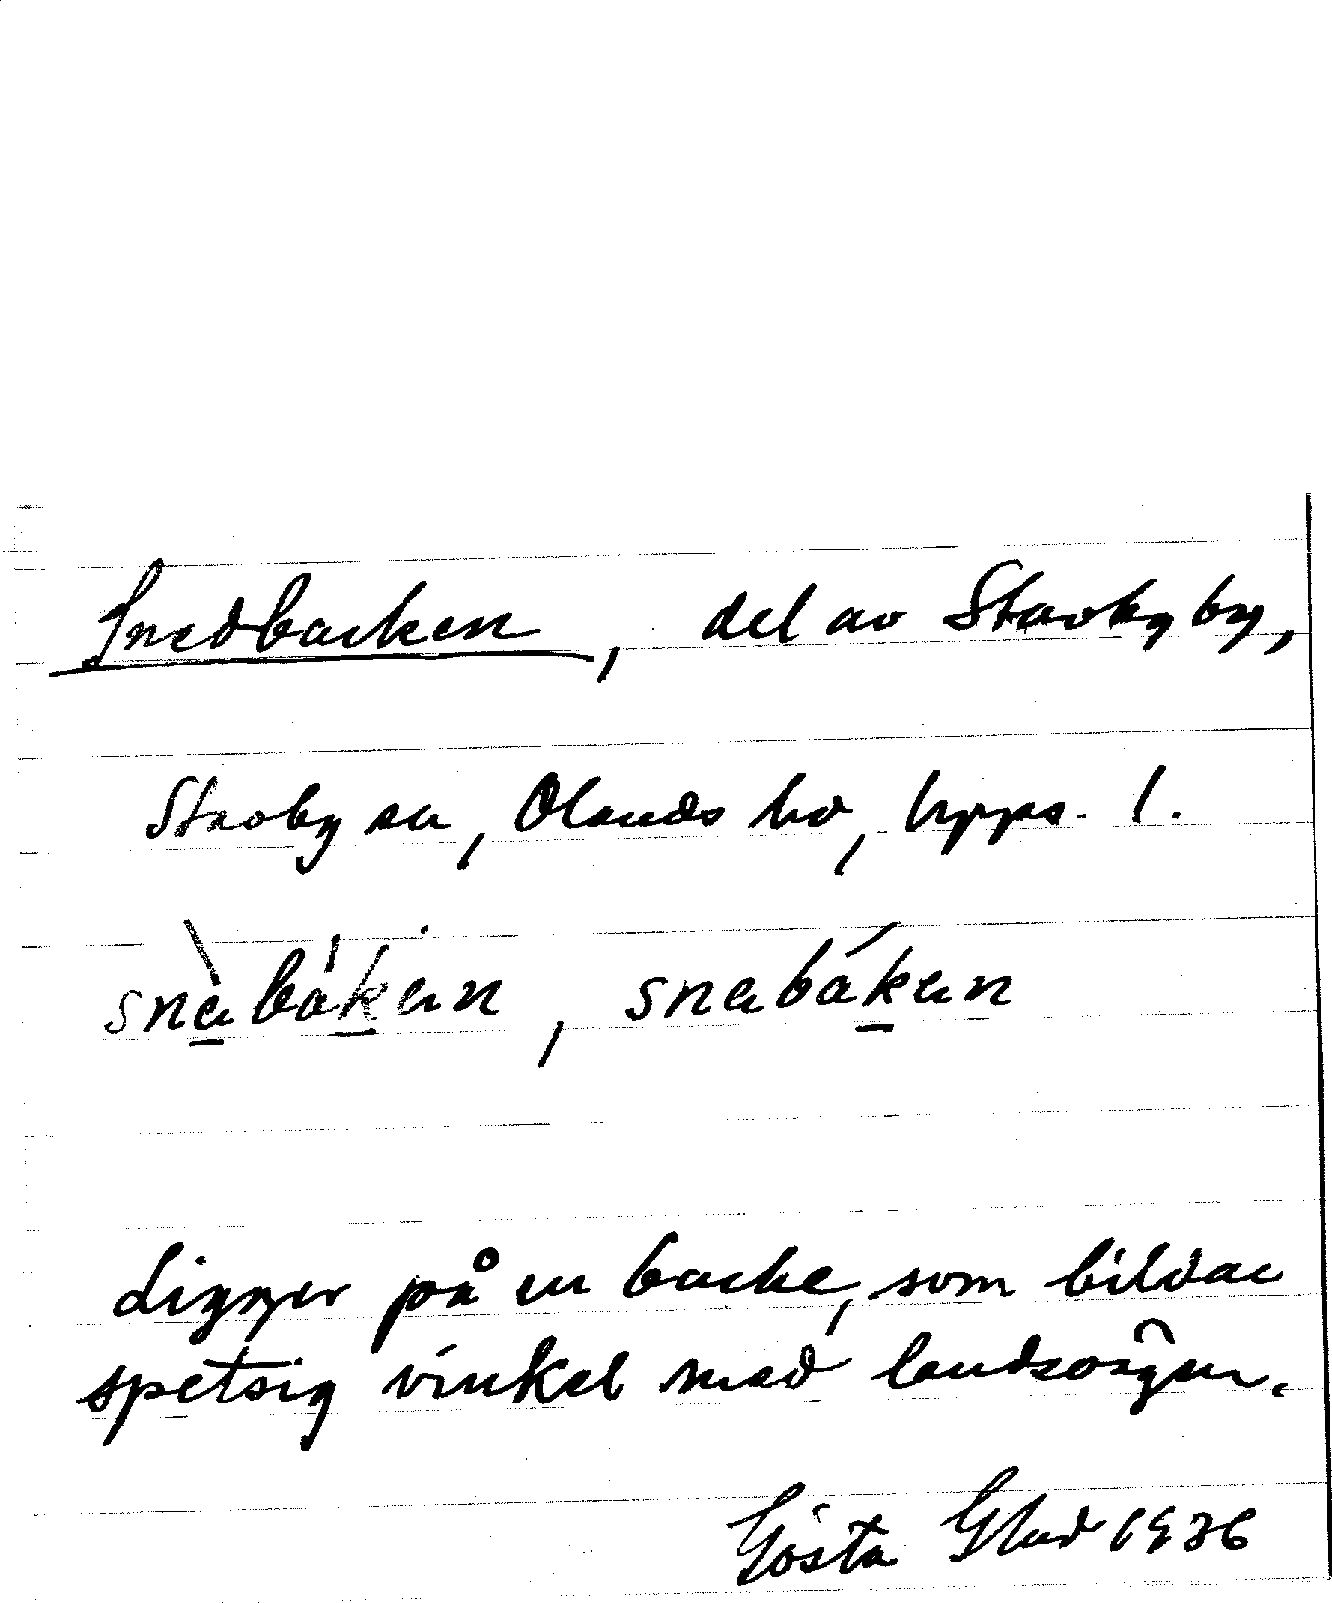 Snedbacken, del av Stavby by,
Stavby sn, Olands hd, Upps. l.
snèbàkan, snebákan
Ligger på en backe, som bildar
spetsig vinkel med landsvägen.
Gösta Glad 1936